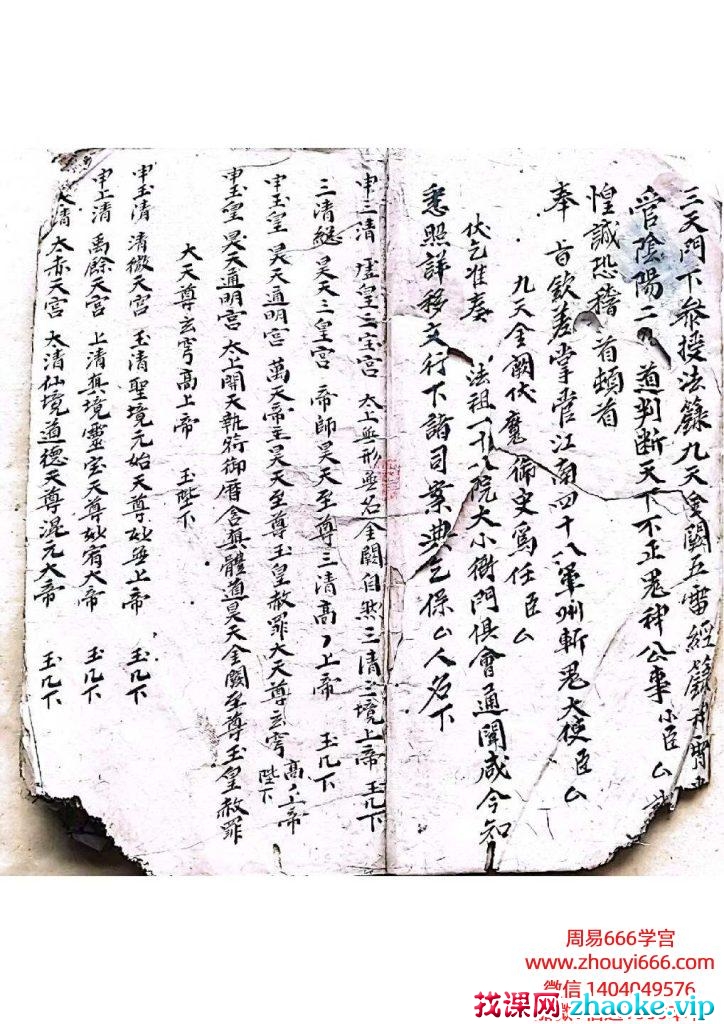 三天門下參授法籙九天金闕五雷經籙
管陰陽二 道判斷天下不正鬼神公事 小臣厶
惶誠恐稽首頓首
奉 旨欽差掌管江南四十八軍州斬鬼大使臣厶
九天金闕伏魔 史寫任臣厶
伏乞准奏 法祖一 院大小衙門俱會通聞咸令知
悉照詳移文行下諸司案典乞保厶人名下
申三清 虛皇三宝宮 太上無形無名金闕自然三清三境上帝 玉几下
三清總 昊天三皇宮 帝師昊天至尊三清高〃上帝 玉几下
申玉皇 昊天通明宮 萬天帝主昊天至尊玉皇赦罪大天尊玄穹高〃上帝 陛下
申玉皇 昊天通明宮 太上開天執符御曆含真體道昊天金闕至尊玉皇赦罪
大天尊玄穹高上帝 玉陛下
申玉清 清微天宮 玉清聖境元始天尊妙無上帝 玉几下
申上清 禹餘天宮 上清真境靈宝天尊妙有大帝 玉几下
太清 太赤天宮 太清仙境道德天尊混元大帝 玉几下
周易666学宫
www.zhouyi666.com
微信 1404049576
找课网zhaoke.vip